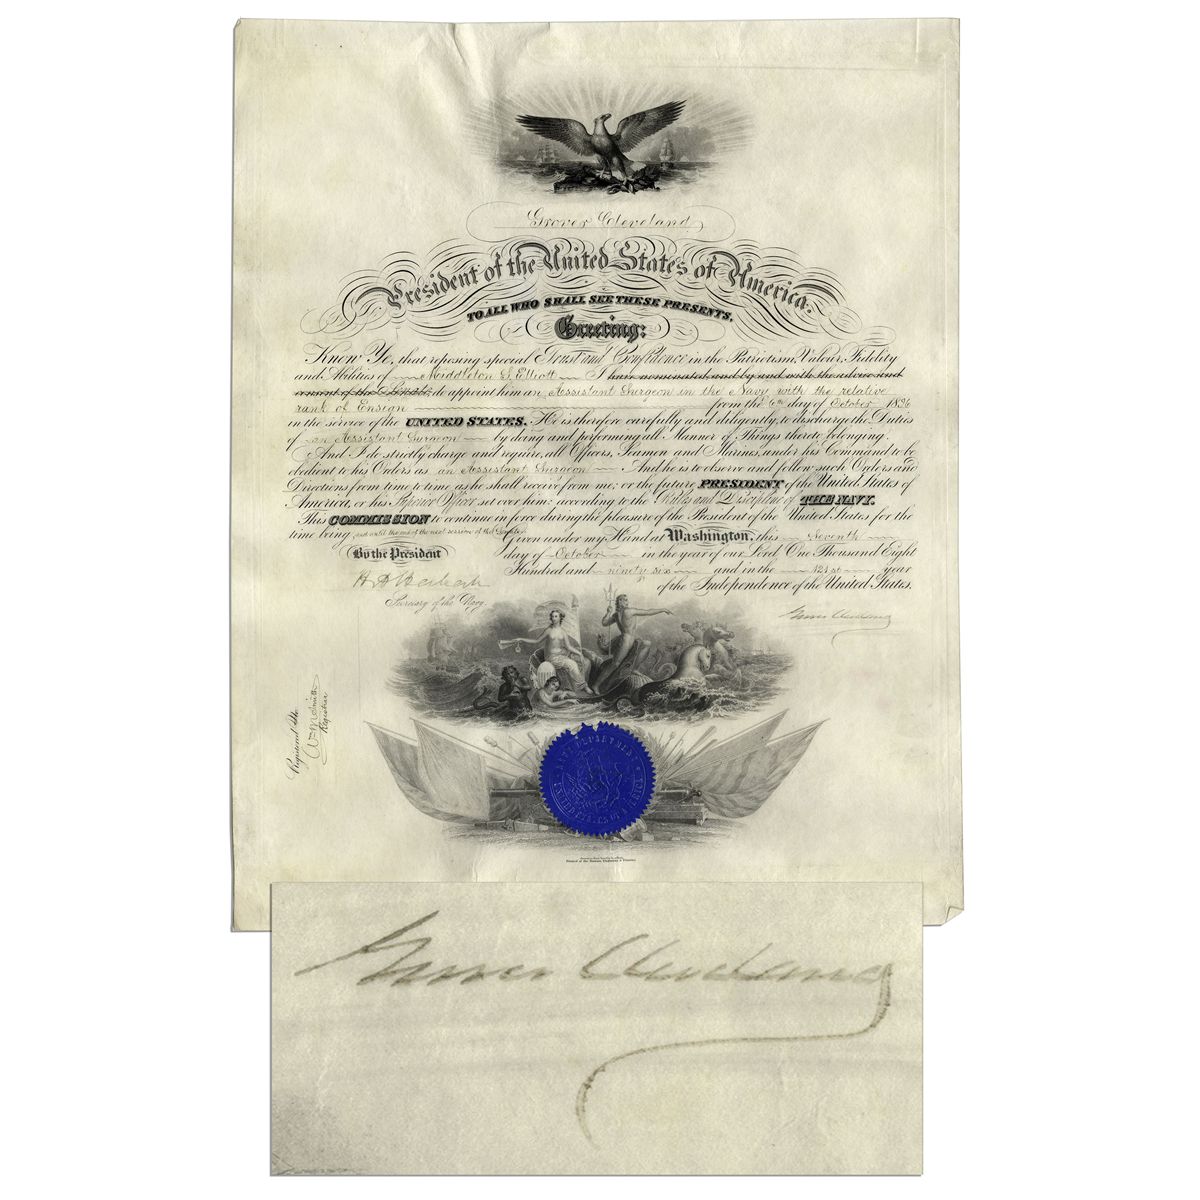 Grover Cleveland
President of the United States of America.
TO ALL WHO SHALL SEE THESE PRESENTS,
Greeting:
Know Ye, that reposing special Trust and Confidence in the Patriotism, Valour, Fidelity
and Abilities of Middleton S. Elliott I have nominated, and by and with the advice and
consent of the Senate, do appoint him an Assistant Surgeon in the Navy with the relative
rank of Ensign from the 6th day of October 1896
in the service of the UNITED STATES. He is therefore carefully and diligently to discharge the Duties
of an Assistant Surgeon by doing and performing all Manner of Things thereto belonging.
And I do strictly charge and require, all Officers, Seamen and Marines, under his Command to be
obedient to his Orders as an Assistant Surgeon And he is to observe and follow such Orders and
Directions from time to time as he shall receive from me; or the future PRESIDENT of the United States of
America, or his Superior Officer set over him; according to the Rules and Discipline of THE NAVY.
This COMMISSION to continue in force during the pleasure of the President of the United States for the
time being and until the end of the next session of the Senate.
Given under my Hand at Washington, this Seventh
day of October in the year of our Lord One Thousand Eight
Hundred and ninety six and in the 121st year
of the Independence of the United States.
By the President
Secretary of the Navy.
Grover Cleveland
Registered
Registrar
NAVY DEPARTMENT
UNITED STATES OF AMERICA
Grover Cleveland